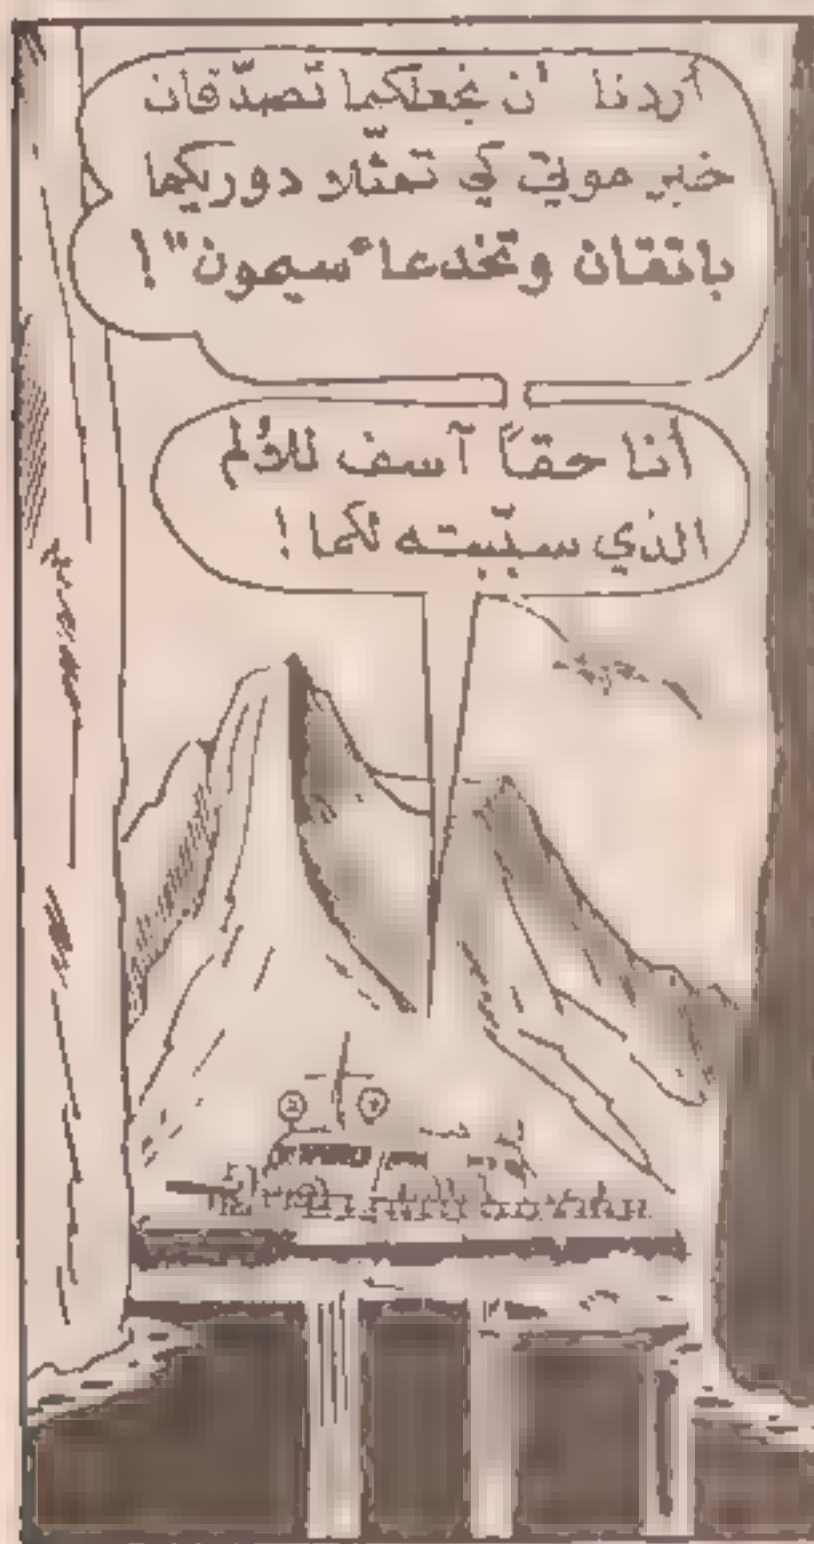 أردنا أن نجعلكما تصدّقان
خبر موتي كي تمثّلا دوريكما
باتقان وتخدعا "سيمون"!
أنا حقاً آسف للألم
الذي سبّبته لكما!